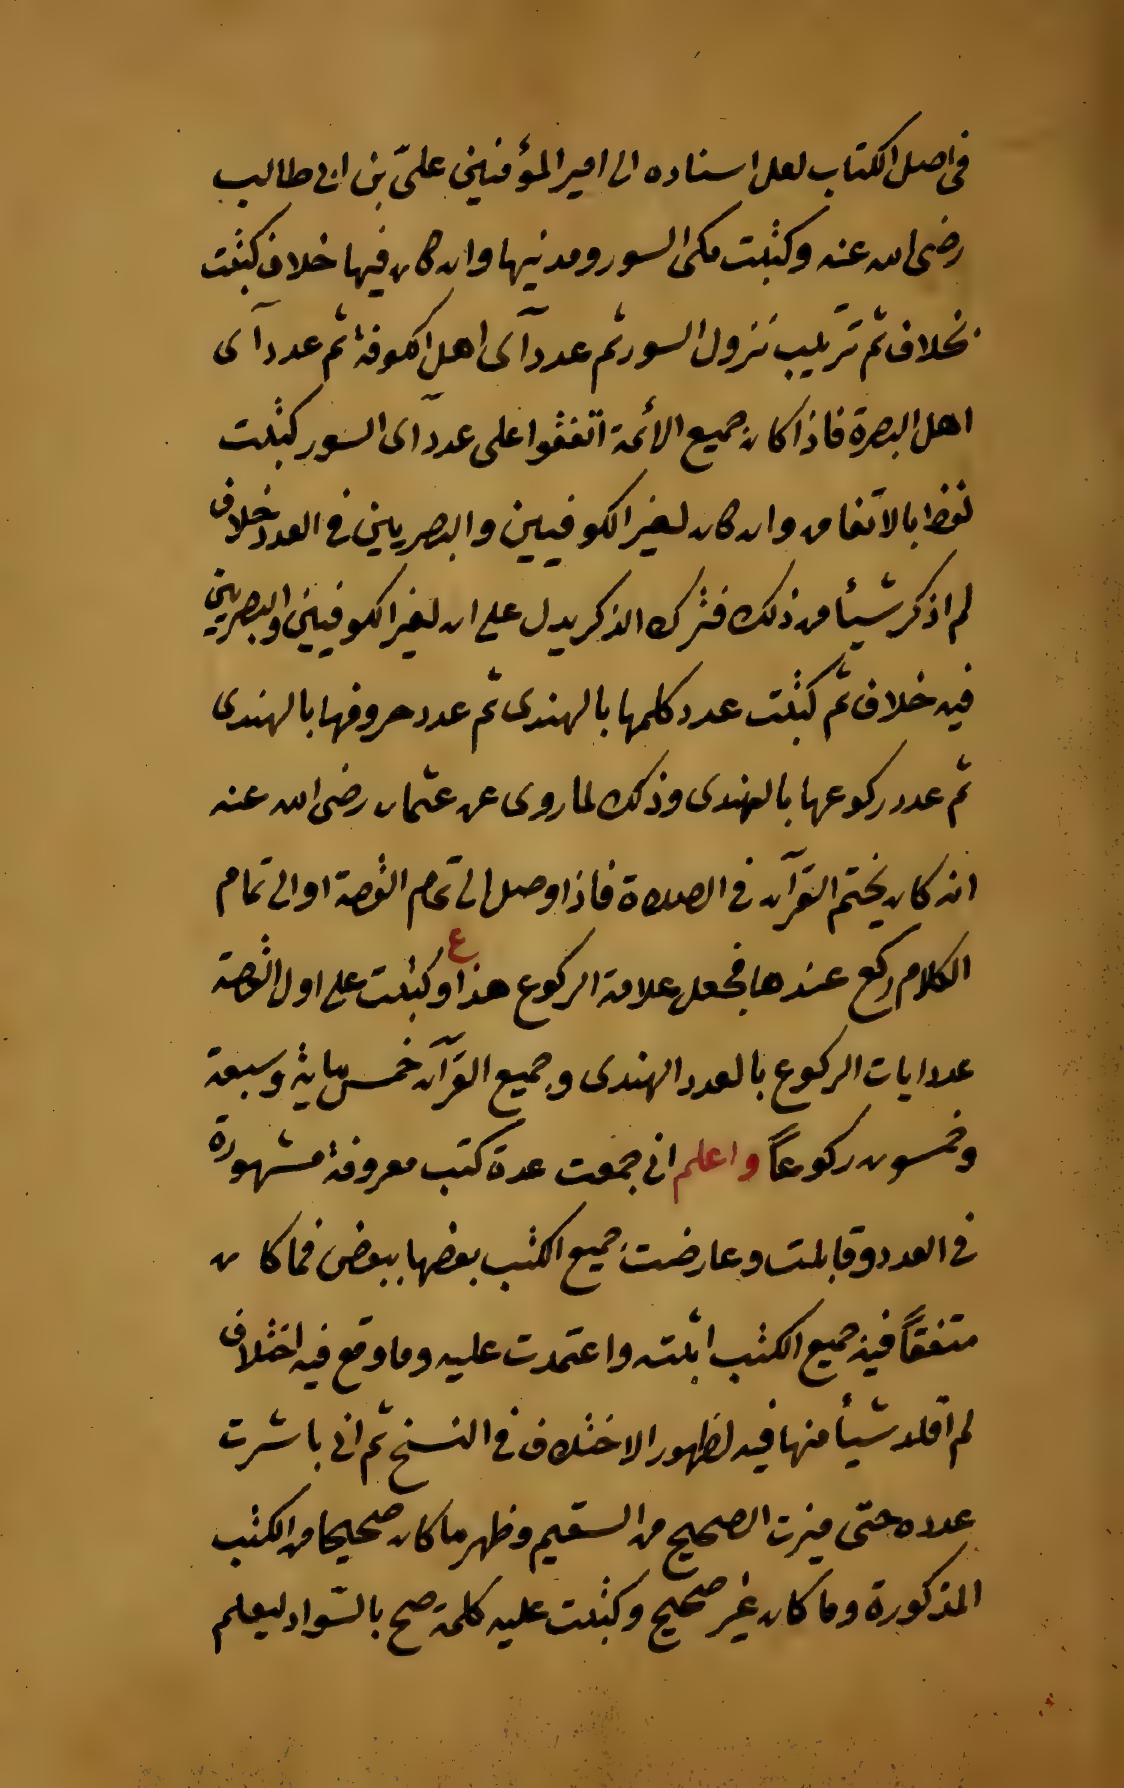 فى اصل الكتاب لعل اسناده الى امير المؤمنين علىّ بن ابى طالب
رضى الله عنه وكتبت مكى السور ومدنيها وان كان فيها خلاف كتبت
بخلاف ثم ترتيب نزول السور ثم عدد آى اهل الكوفة ثم عدد آى
اهل البصرة فاذا كان جميع الأئمة اتفقوا على عدد آى السور كتبت
لفظ بالاتفاق وان كان لغير الكوفيين والبصريين فى العدد خلاف
لم اذكر شيأ من ذلك فترك الذكر يدل على ان لغير الكوفيين والبصريين
فيه خلاف ثم كتبت عدد كلمها بالهندى ثم عدد حروفها بالهندى
ثم عدد ركوعها بالهندى وذلك لما روى عن عثمان رضى الله عنه
انه كان يختم القرآن فى الصلاة فاذا وصل الى تمام القصة او الى تمام
الكلام ركع عندها فجعل علامة الركوع هذا ع وكتبت على اول القصة
عدد ايات الركوع بالعدد الهندى وجميع القرآن خمس ماية وسبعة
وخمسون ركوعاً واعلم انى جمعت عدة كتب معروفة مشهورة
فى العدد وقابلت وعارضت جميع الكتب بعضها ببعض فما كان
متفقاً فيه جميع الكتب اثبته واعتمدت عليه وما وقع فيه اختلاف
لم اقلد شيأ منها فيه لظهور الاختلاف فى النسخ ثم انى باشرت
عدده حتى ميزت الصحيح من السقيم وظهر ما كان صحيحا من الكتب
المذكورة وما كان غير صحيح وكتبت عليه كلمة صح بالسّواد ليعلم